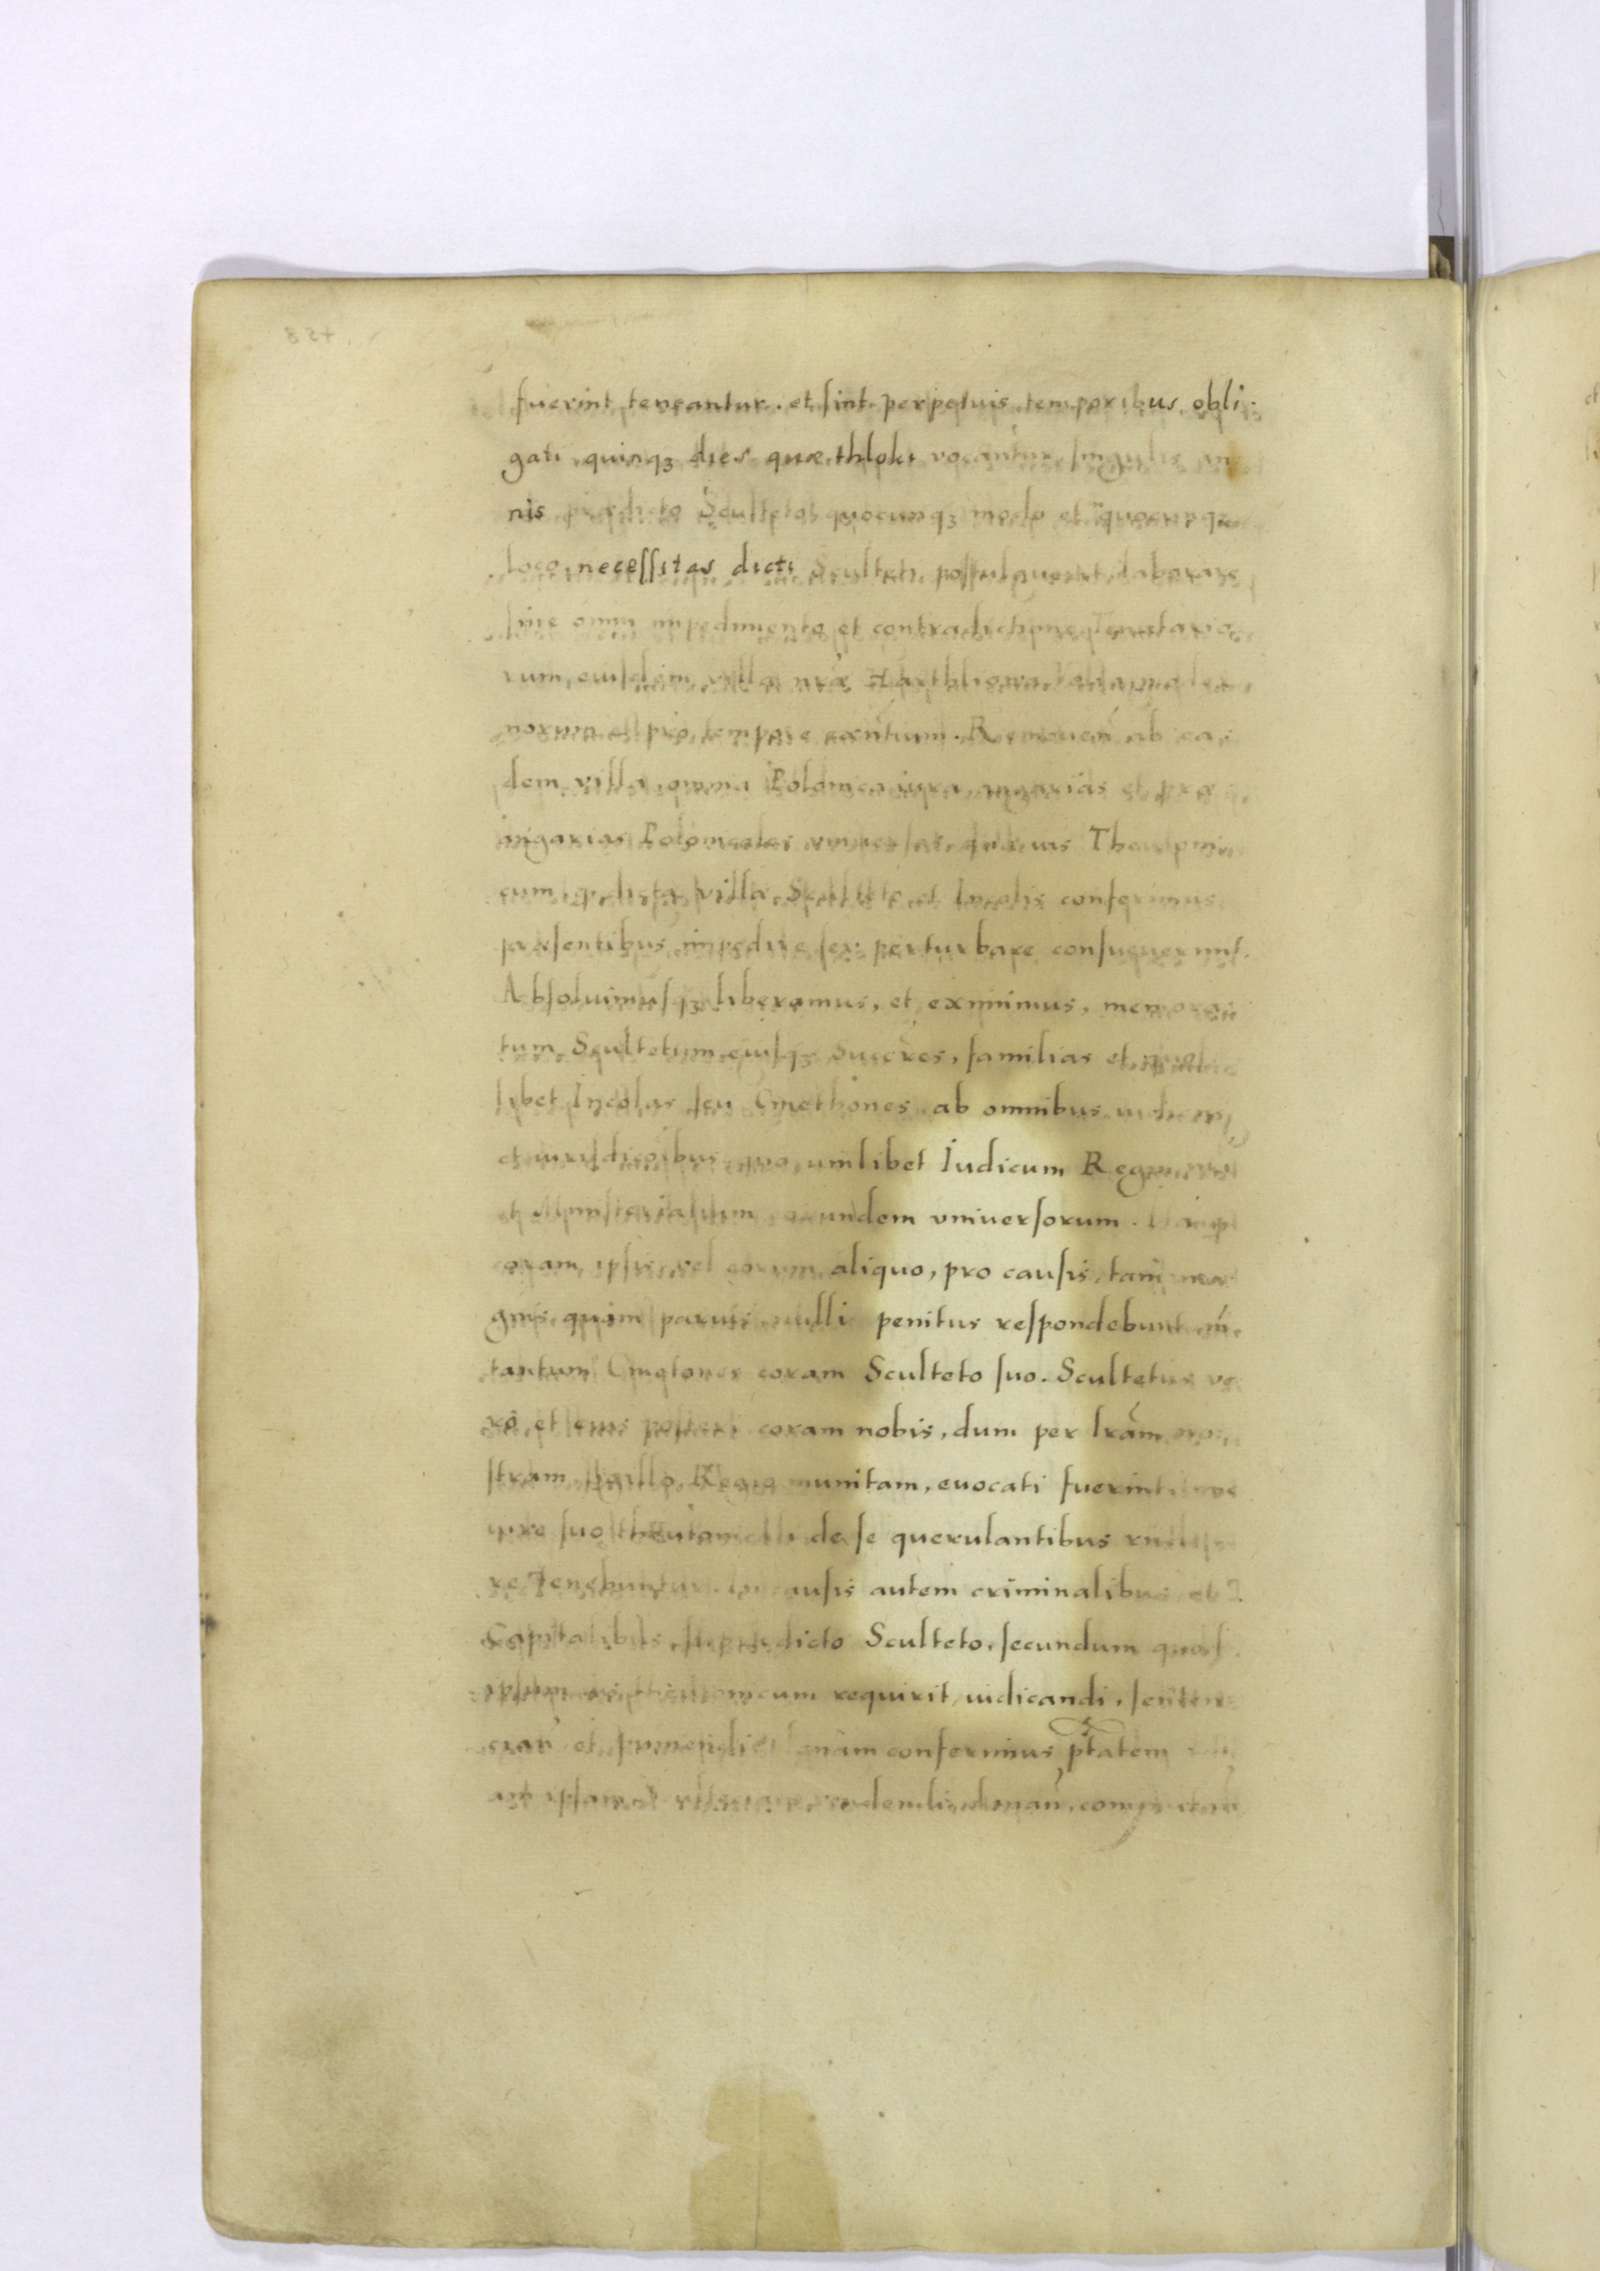 fuerint teneantur. et sint perpetuis temporibus obli:
gati quinqȝ dies quæ thloki vocantur singulis an
nis prædicto Sculteto quocunqȝ modo et quocunque
loco necessitas dicti Sculteti postulauerit, laborare
sine omni impedimento et contradictione
rum, eiusdem villæ nr̃æ
norum et pro tempore Remouen̄ ab ea
dem villa omnia Polonica iura, angarias et præ
angarias Polonicales vniuersas, quæ ius
cum, villa, Sculteto et Incolis conferimus
præsentibus impedire seu perturbare consueuerunt.
Absoluimusqȝ liberamus, et eximimus, memora
tum Scultetum, eiusqȝ succ̃res, familias et quos
libet Incolas seu Cmethones ab omnibus iudicijs
et iurisdicõibus quorumlibet Iudicum Regni
et Ministerialium eorundem vniuersorum.
coram ipsis, vel eorum aliquo, pro causis, tam ma
gnis, quàm paruis nulli penitus respondebunt, nĩ.
tantum Cmetones coram Sculteto suo. Scultetus ve
rò et eius posteri coram nobis, dum per lr̃am no
stram, sigillo Regio munitam, euocati fuerint,
iure suo de se querulantibus
re tenebuntur. In causis autem criminalibus et
Capitalibus, Sculteto, secundum quod
requirit iudicandi, senten
cian̄ et puniendi conferimus ptatem
aut ipsam donan̄,